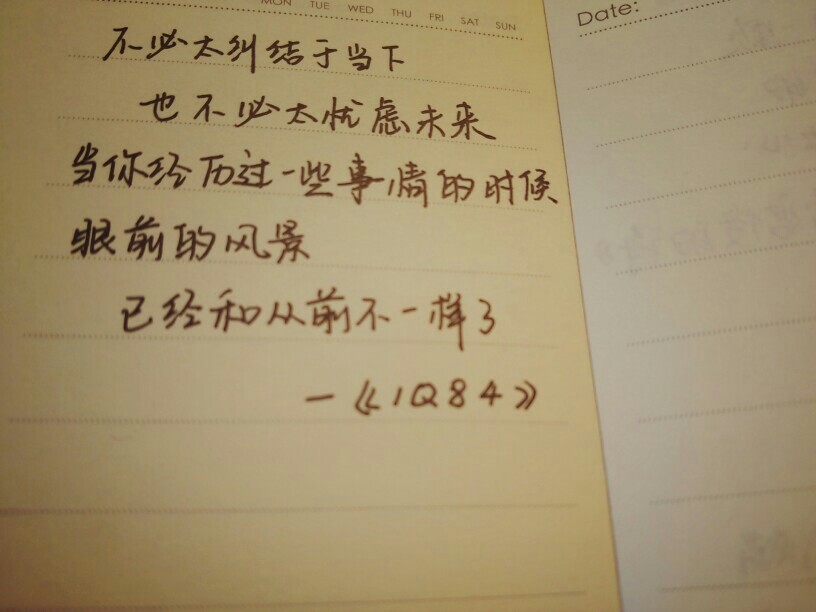 MON TUE WED THU FRI SAT SUN
Date:
不必太纠结于当下
也不必太忧虑未来
当你经历过一些事情的时候
眼前的风景
已经和从前不一样了
—《1Q84》